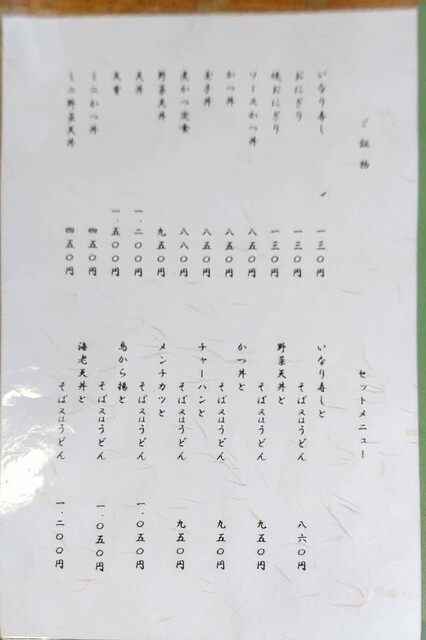 ご飯物
いなり寿し 一三〇円
おにぎり 一三〇円
焼おにぎり 一三〇円
ソースかつ丼 八五〇円
かつ丼 八五〇円
玉子丼 八五〇円
煮かつ定食 八八〇円
野菜天丼 九五〇円
天丼 一、二〇〇円
天重 一、五〇〇円
ミニかつ丼 四五〇円
ミニ野菜天丼 四五〇円
セットメニュー
いなり寿しと
そば又はうどん 八六〇円
野菜天丼と
そば又はうどん 九五〇円
かつ丼と
そば又はうどん 九五〇円
チャーハンと
そば又はうどん 九五〇円
メンチカツと
そば又はうどん 一、〇五〇円
鳥から揚と
そば又はうどん 一、〇五〇円
海老天丼と
そば又はうどん 一、二〇〇円